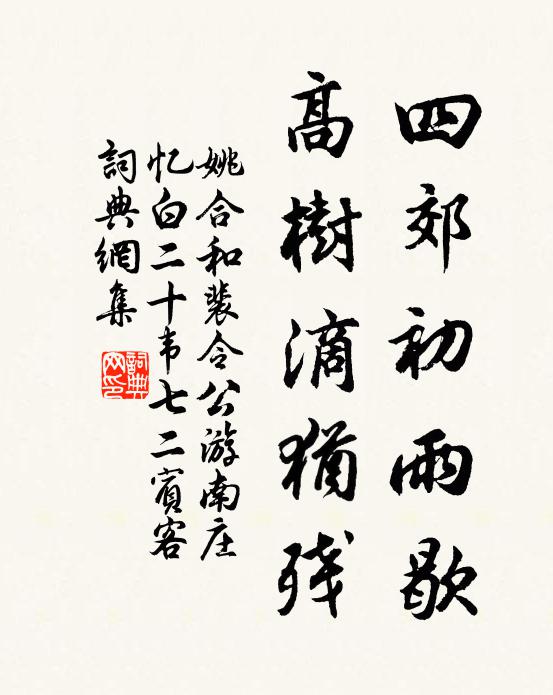 四郊初雨歇
高樹滴猶残
姚合和裴令公游南庄
忆白二十韦七二賓客
詞典網集
詞典网印